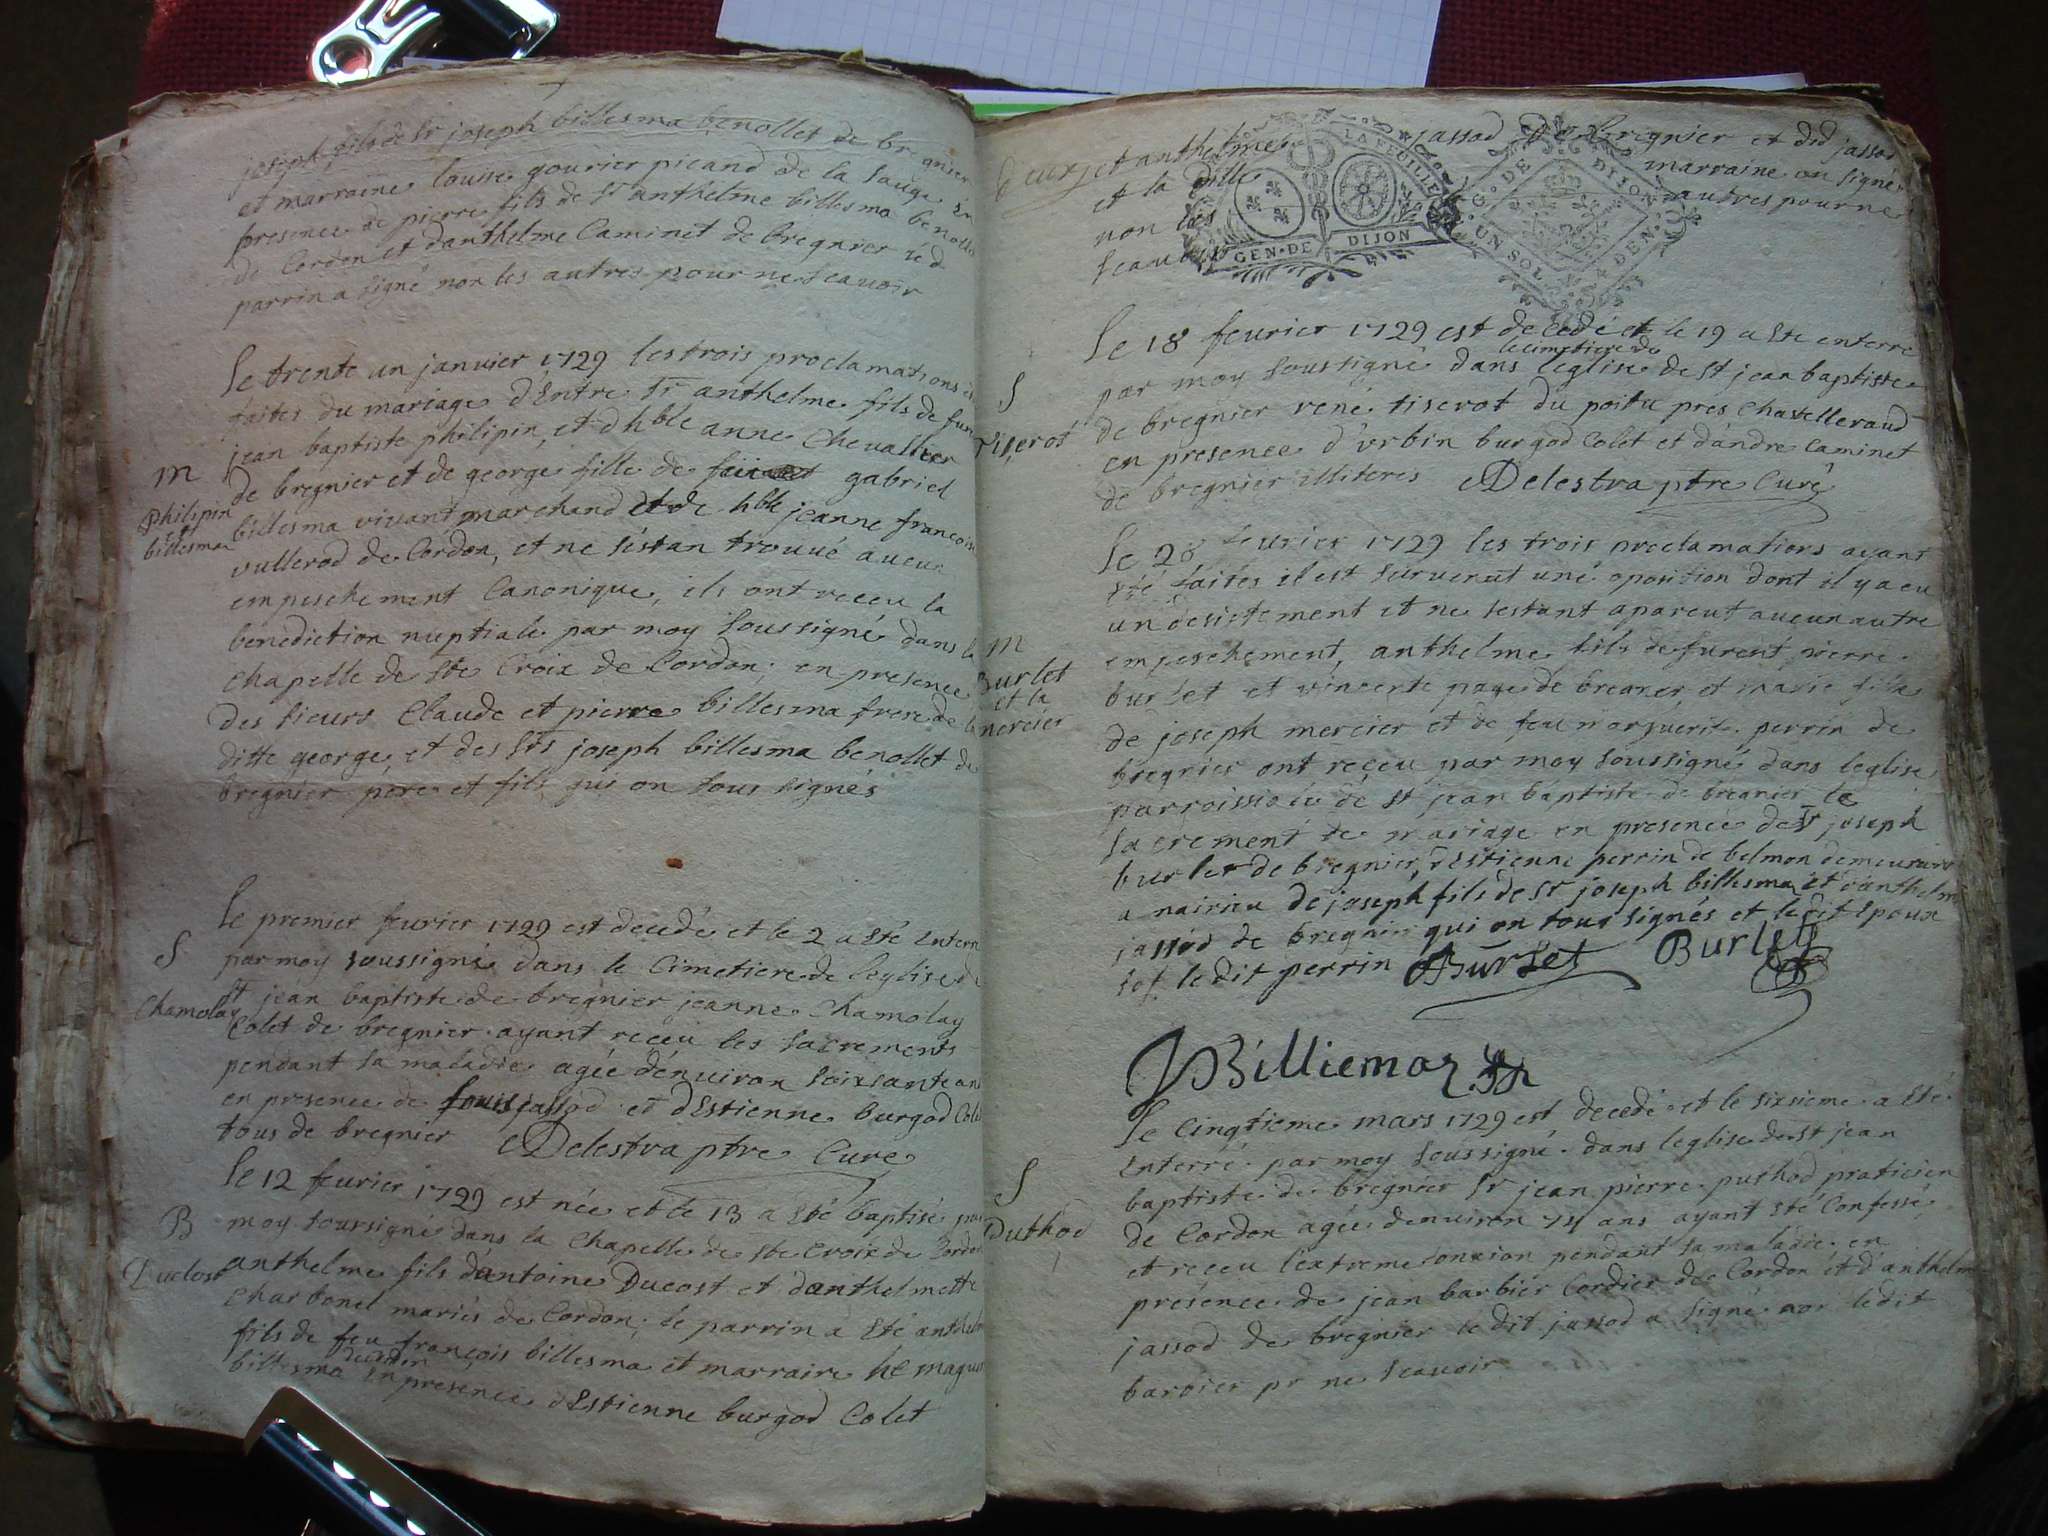 joseph fils de Sr joseph billesma benollet de bregnier
et marraine louise gourier picand de la sauge En
presence de pierre fils de Sr anthelme billesma benollet
de Cordon et danthelme Caminet de bregnier led
parrin a signé non les autres pour ne scavoir
Le trente un janvier 1729 les trois proclamations
faites du mariage d'Entre Sr anthelme fils de
jean baptiste philipin, et d hble anne Chevallier
de bregnier et de george fille de gabriel
billesma vivant marchand et de hble jeanne francoise
vullerod de Cordon, et ne s'estan trouvé aucun
empeschement Canonique, ils ont receu la
benediction nuptiale par moy soussigné dans la
chapelle de Ste Croix de Cordon; en presence
des sieurs Claude et pierre billesma frere de la
ditte george, et des Srs joseph billesma benollet de
bregnier pere et fils qui on tous signés
M
philipin
et
billesma
Le premier fevrier 1729 est decedé et le 2 a Eté Enterré
par moy soussigné dans le Cimetiere de leglise de
St jean baptiste de bregnier jeanne Chamolay
Colet de bregnier ayant receu les sacrements
pendant sa maladie agée d'énviron soixsante ans
en presence de louis jassod et d'Estienne Burgod Colet
tous de bregnier Delestra ptre Cure
S
Chamolay
Le 12 fevrier 1729 est née et le 13 a Eté baptisé par
moy soussigné dans la Chapelle de Ste Croix de Cordon
anthelme fils d'antoine Ducost et danthelmette
Charbonel mariés de Cordon; le parrin a Eté anthelme
fils de feu françois billesma et marraine
billesma En presence d'Estienne burgod Colet
B
Duclost
et anthelme jassod de bregnier et dd jassod
et la ditte marraine on signé
non les autres pour ne
scavoir
LA FEUILLE
GEN • DE DIJON
G • DE DIJON
UN SOL
DEN
Le 18 fevrier 1729 est decedé et le 19 a Ete enterré
par moy soussigné dans le cimetiere de leglise de St jean baptiste
de bregnier rené tiserot du poitu pres Chastelleraud
en presence d'vrbin burgod Colet et d'andre Caminet
de bregnier illiteres Delestra ptre Curé
S
Tiserot
Le 28 fevrier 1729 les trois proclamations ayant
Eté faites il est survenut une oposition dont il y a eu
un desistement et ne sestant apareut aucun autre
empeschement, anthelme fils de furent pierre
burlet et vincente page de bregnier et marie fille
de joseph mercier et de feu marguerite perrin de
bregnier ont reçeu par moy soussigné dans leglise
parroissiale de St jean baptiste de bregnier le
sacrement de mariage en presence de Sr joseph
burlet de bregnier, Estienne perrin de belmon demeurant
a nairieu de joseph fils de Sr joseph billesma et d'anthelme
jassod de bregnier qui on tous signés et ledit Epoux
sof ledit perrin Burlet Burlet
JBilliemaz
M
Burlet
et la
mercier
Le Cinqtieme mars 1729 est decedé et le sixsieme a Eté
Enterré par moy soussigné dans leglise de St jean
baptiste de bregnier Sr jean pierre puthod praticien
de Cordon agée denviron 74 ans ayant Eté Confessé
et receu lextreme onxion pendant sa maladie en
présence de jean barbier Cordier de Cordon et d'anthelme
jassod de bregnier le dit jassod a signé non ledit
barbier pr ne scavoir
S
Puthod